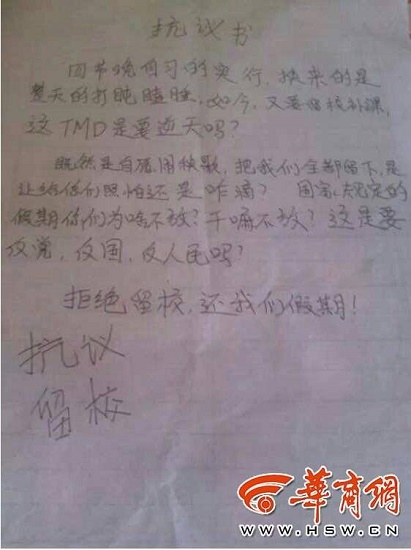 抗议书
四节晚自习的实行,换来的是
整天的打盹瞌睡,如今,又要留校补课,
这TMD是要逆天吗?
既然是自愿,把我们全部留下,是
让给你们照还是咋滴?国家规定的
假期你们为啥不放?干嘛不放?这是要
反党,反国,反人民吗?
拒绝留校,还我们假期!
抗议
留校
华商网
WWW.HSW.CN